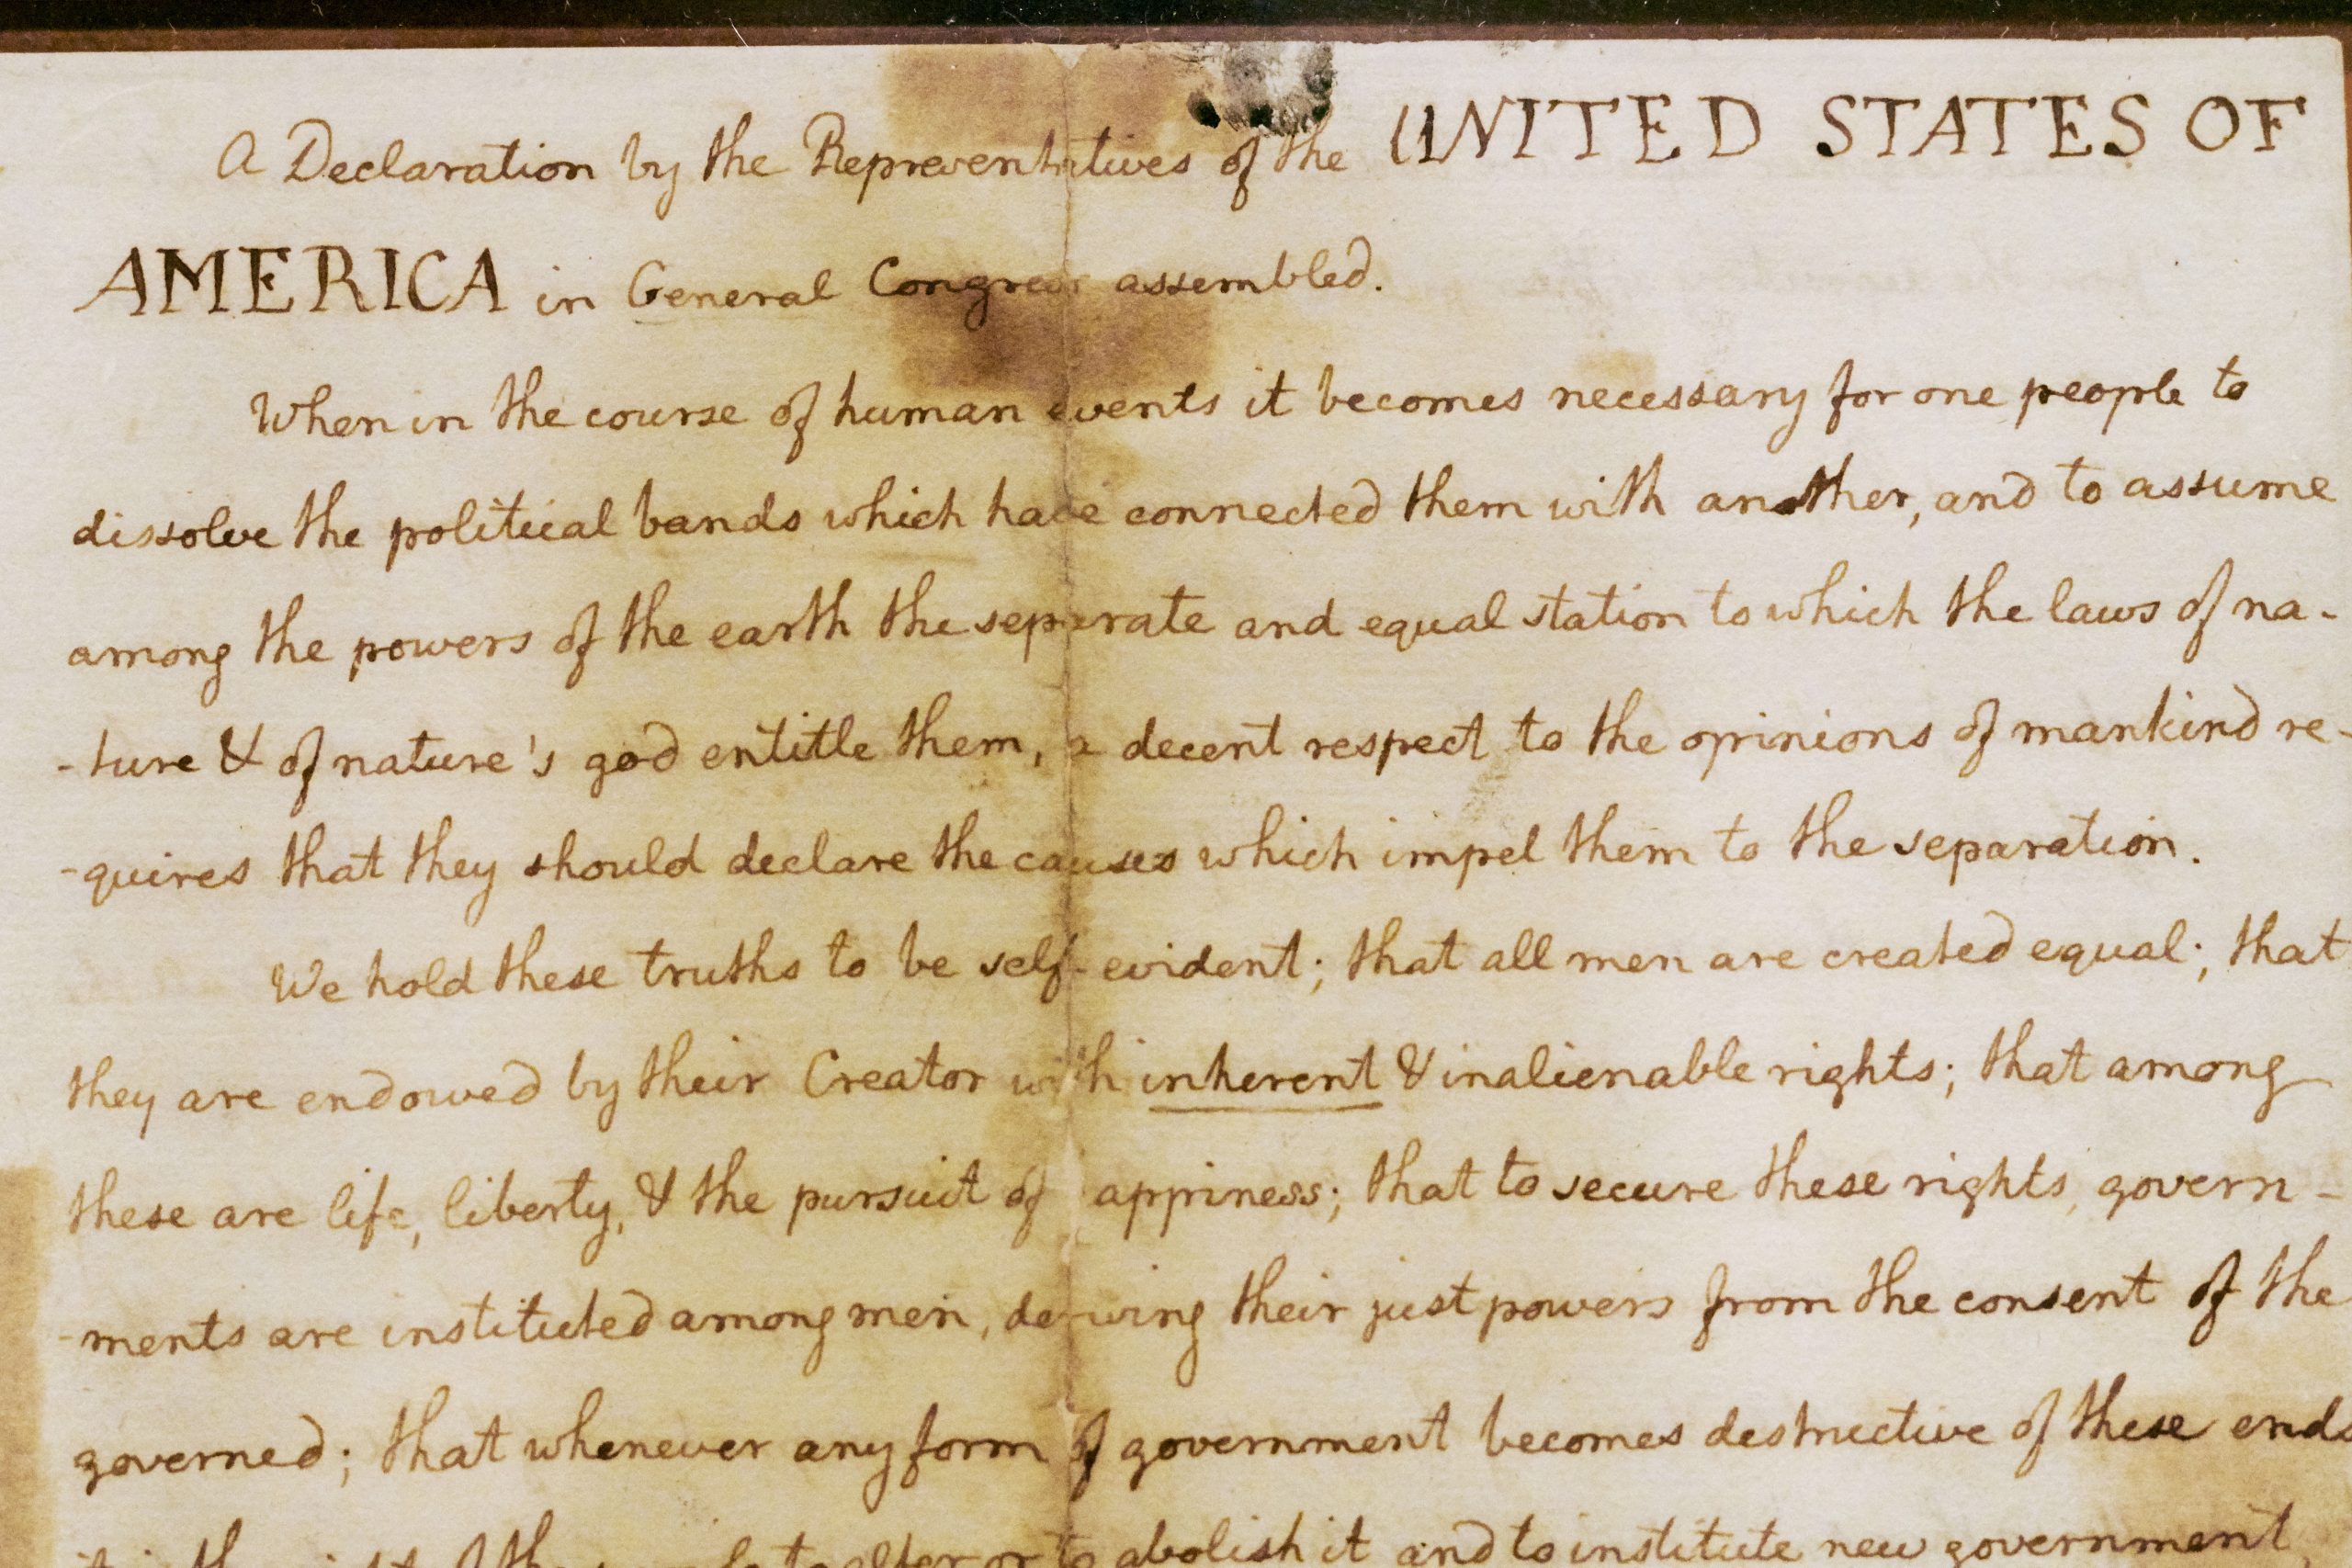 A Declaration by the Representatives of the UNITED STATES OF
AMERICA in General Congress assembled.
When in the course of human events it becomes necessary for one people to
dissolve the political bands which have connected them with another, and to assume
among the powers of the earth the separate and equal station to which the laws of na-
-ture & of nature's god entitle them, a decent respect to the opinions of mankind re-
-quires that they should declare the causes which impel them to the separation.
We hold these truths to be self-evident; that all men are created equal; that
they are endowed by their Creator with inherent & inalienable rights; that among
these are life, liberty, & the pursuit of appiness; that to secure these rights, govern-
-ments are instituted among men, deriving their just powers from the consent of the
governed; that whenever any form of government becomes destructive of these ends
to alter or to abolish it and to institute new government